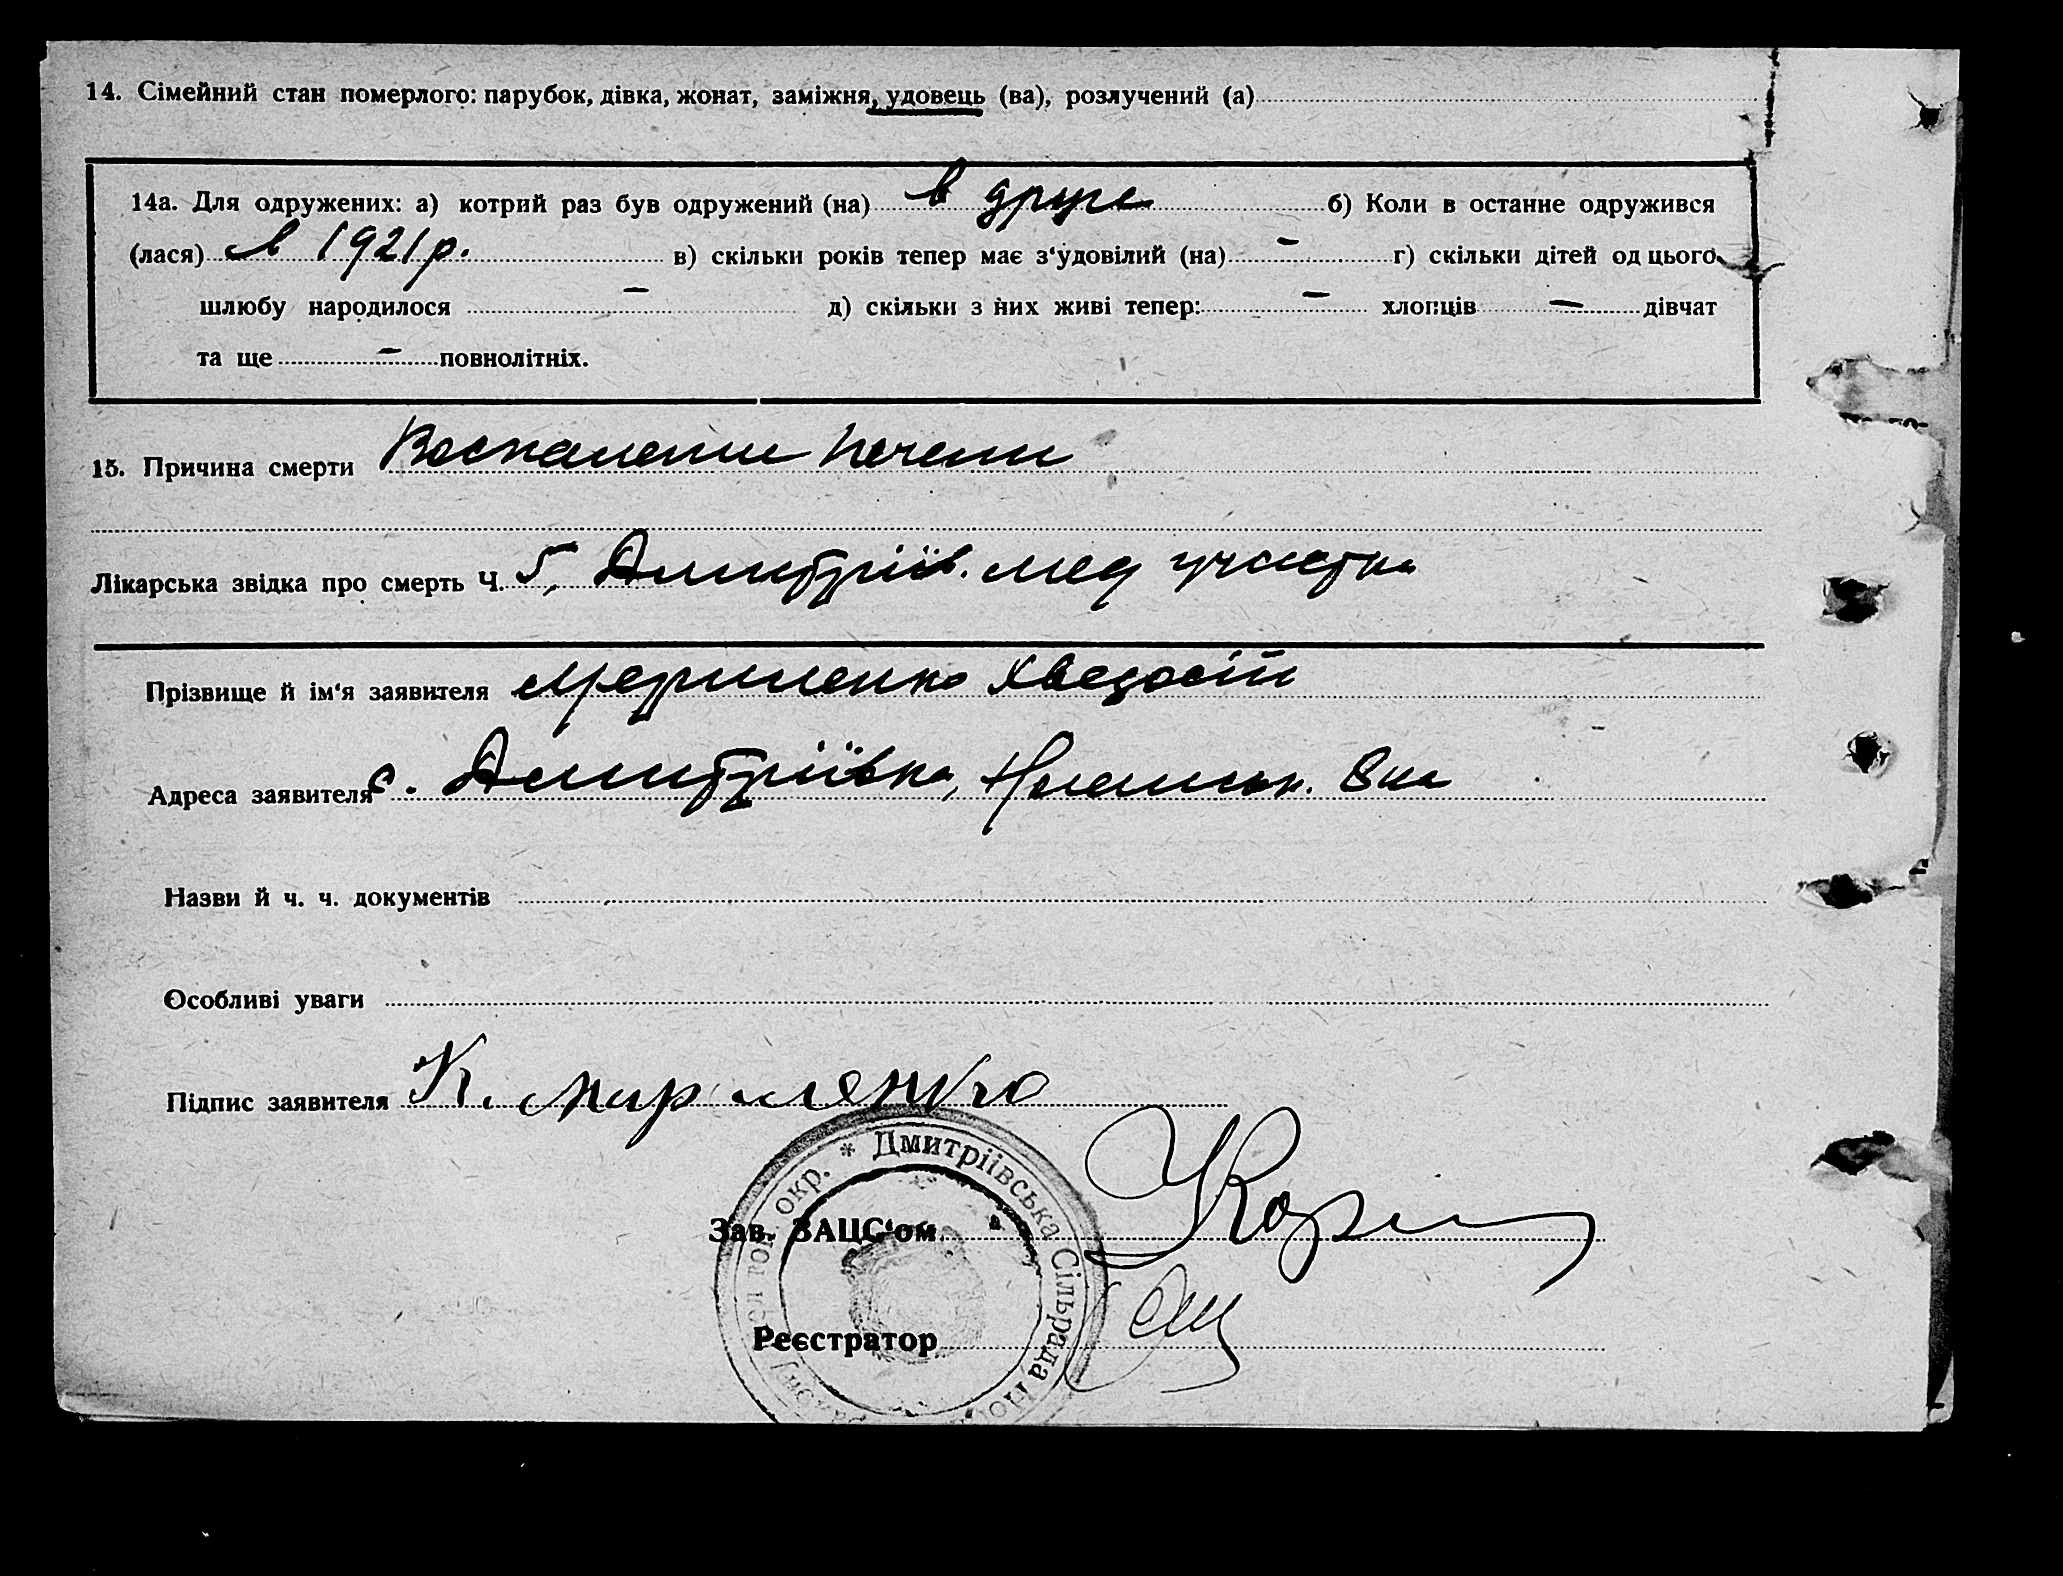 14. Сімейний стан померлого: парубок, дівка, жонат, заміжня, удовець (ва), розлучений (а)
14а. Для одружених: а) котрий раз був одружений (на) в друге б) Коли в останнє одружився
(лася) в 1921 р. в) скільки років тепер має з‘удовілий (на) – г) скільки дітей од цього
шлюбу народилося – д) скільки з них живі тепер: – хлопців – дівчат
та ще – повнолітніх.
15. Причина смерти Воспаление печени
Лікарська звідка про смерть Ч. 5, Дмитріїв. мед участка
Прізвище й ім‘я заявителя
Адреса заявителя с. Дмитріївка,
Назви й ч. ч. документів
Особливі уваги
Підпис заявителя К.
* Дмитріївська Сільрада окр.
Зав. ЗАЦС‘ом
Реєстратор